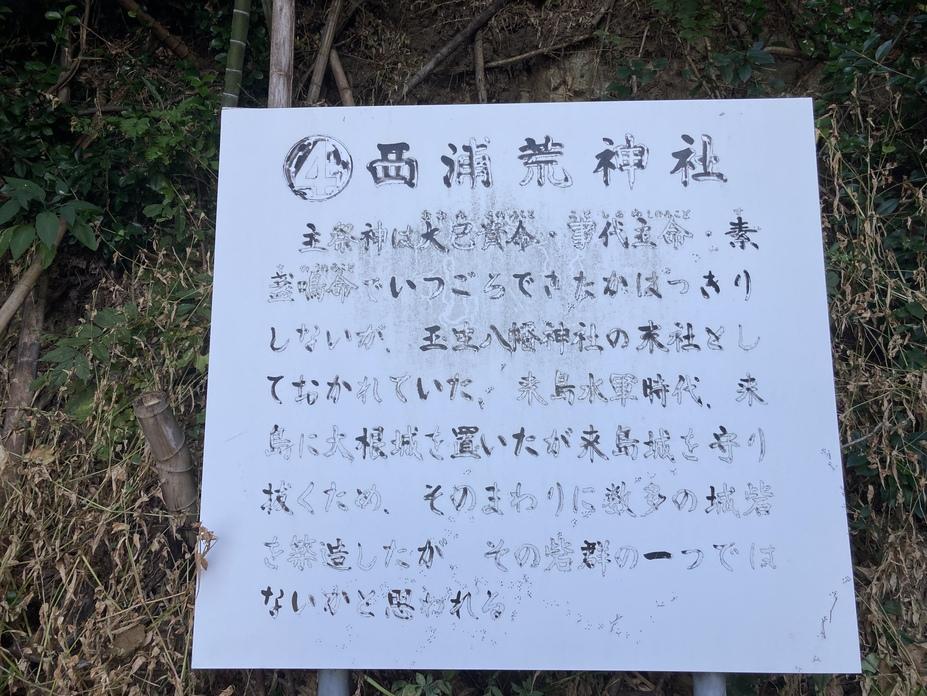 ④ 西浦荒神社
主祭神は大己貴命・事代主命・素
盞嗚命でいつごろできたかはっきり
しないが、玉生八幡神社の末社とし
ておかれていた。来島水軍時代、来
島に大根城を置いたが来島城を守り
抜くため、そのまわりに数多の城砦
を築造したが その砦群の一つでは
ないかと思われる。